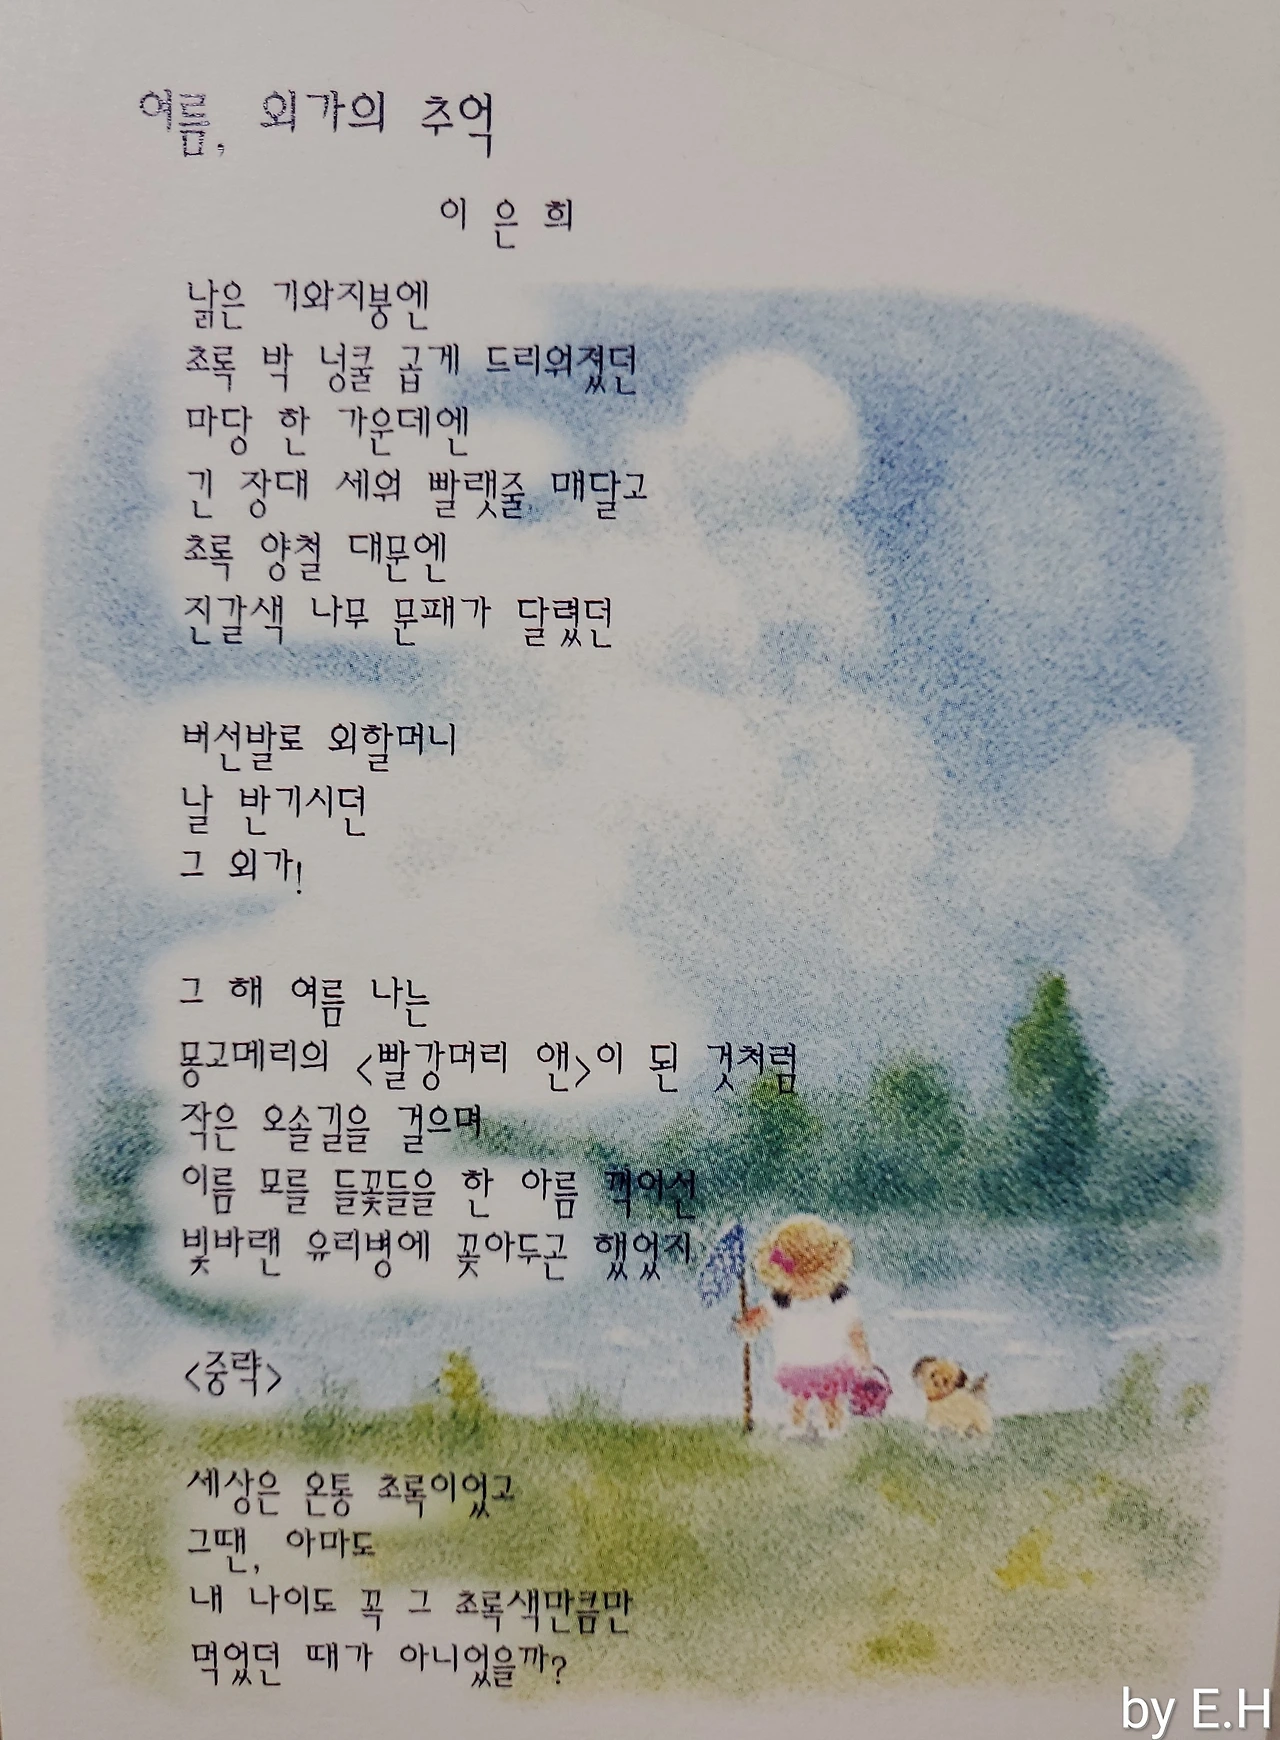 여름, 외가의 추억
이 은 희
낡은 기와지붕엔
초록 박 넝쿨 곱게 드리워졌던
마당 한 가운데엔
긴 장대 세워 빨랫줄 매달고
초록 양철 대문엔
진갈색 나무 문패가 달렸던
버선발로 외할머니
날 반기시던
그 외가!
그 해 여름 나는
몽고메리의 <빨강머리 앤>이 된 것처럼
작은 오솔길을 걸으며
이름 모를 들꽃들을 한 아름 꺽어선
빛바랜 유리병에 꽂아두곤 했었지
<중략>
세상은 온통 초록이었고
그땐, 아마도
내 나이도 꼭 그 초록색만큼만
먹었던 때가 아니었을까?
by E.H